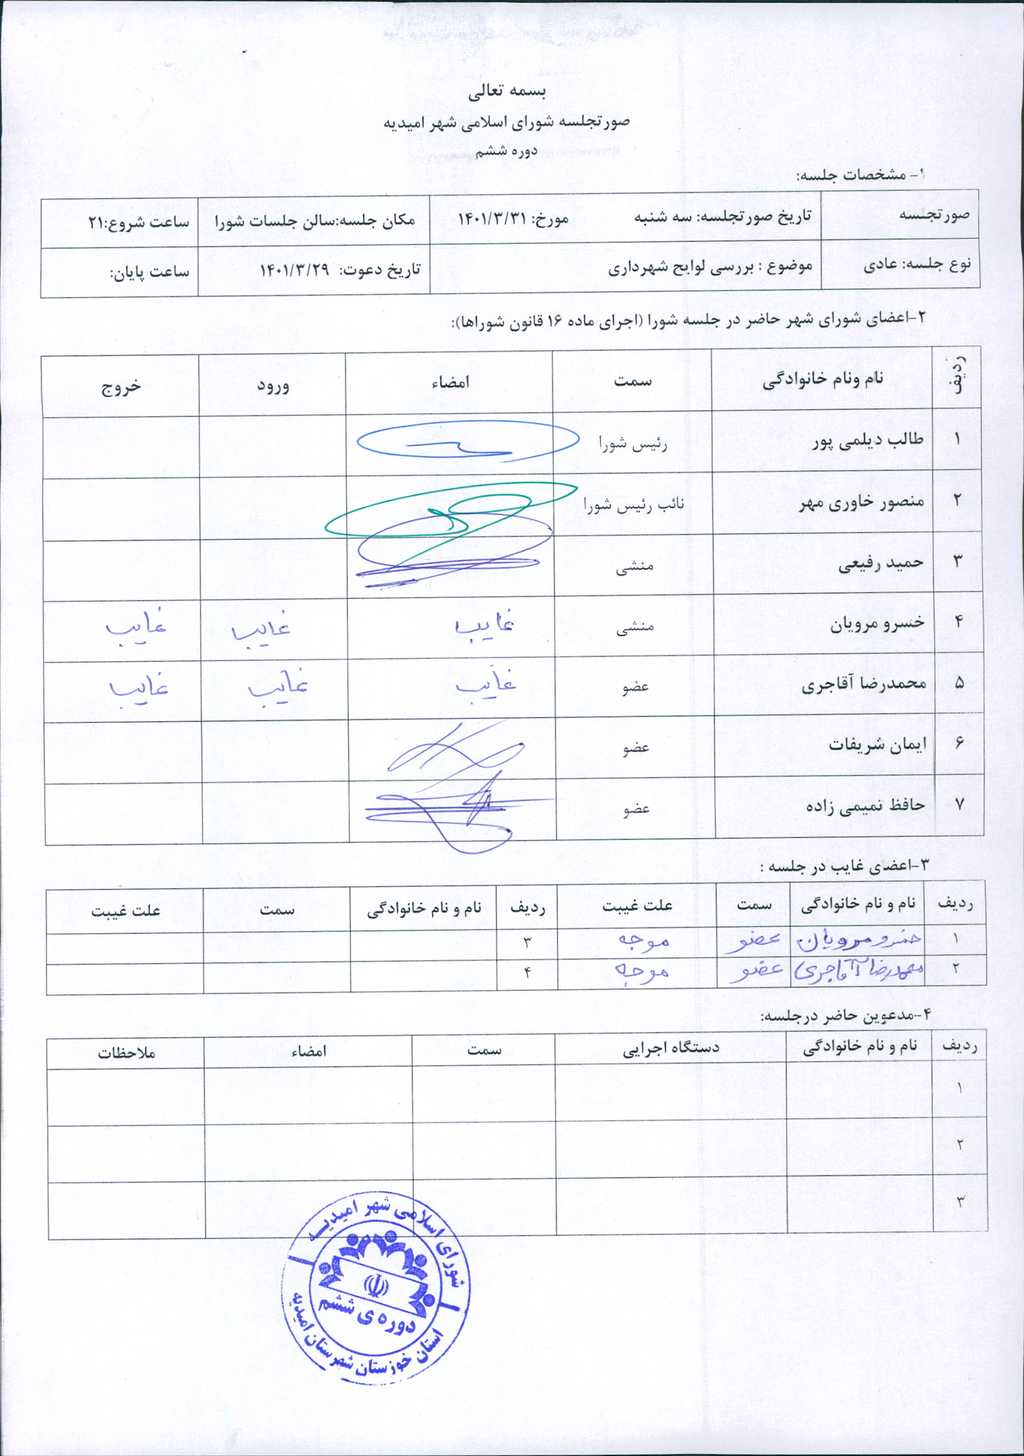 بسمه تعالی
صورتجلسه شورای اسلامی شهر امیدیه
دوره ششم
۱- مشخصات جلسه:
صورتجلسه تاریخ صورتجلسه: سه شنبه مورخ: ۱۴۰۱/۳/۳۱ مکان جلسه:سالن جلسات شورا ساعت شروع:۲۱
نوع جلسه: عادی موضوع : بررسی لوایح شهرداری تاریخ دعوت: ۱۴۰۱/۳/۲۹ ساعت پایان:
۲-اعضای شورای شهر حاضر در جلسه شورا (اجرای ماده ۱۶ قانون شوراها):
ردیف نام ونام خانوادگی سمت امضاء ورود خروج
۱ طالب دیلمی پور رئیس شورا
۲ منصور خاوری مهر نائب رئیس شورا
۳ حمید رفیعی منشی
۴ خسرو مرویان منشی غایب غایب غایب
۵ محمدرضا آقاجری عضو غایب غایب غایب
۶ ایمان شریفات عضو
۷ حافظ نمیمی زاده عضو
۳-اعضای غایب در جلسه :
ردیف نام و نام خانوادگی سمت علت غیبت ردیف نام و نام خانوادگی سمت علت غیبت
۱ خسرو مرویان عضو موجه ۳
۲ محمدرضا آقاجری عضو موجه ۴
۴-مدعوین حاضر درجلسه:
ردیف نام و نام خانوادگی دستگاه اجرایی سمت امضاء ملاحظات
۱
۲
۳
شورای اسلامی شهر امیدیه
دوره ی ششم
استان خوزستان شهرستان امیدیه